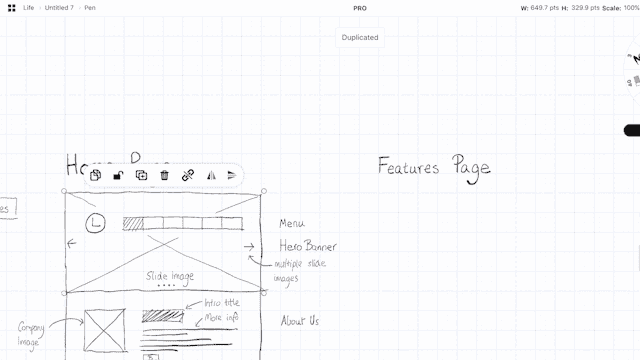 Life > Untitled 7 > Pen
PRO
W: 649.7 pts H: 329.9 pts Scale: 100%
Duplicated
Features Page
Menu
Hero Banner
multiple slide
images
Slide image
Intro title
More info
About Us
Company
Image